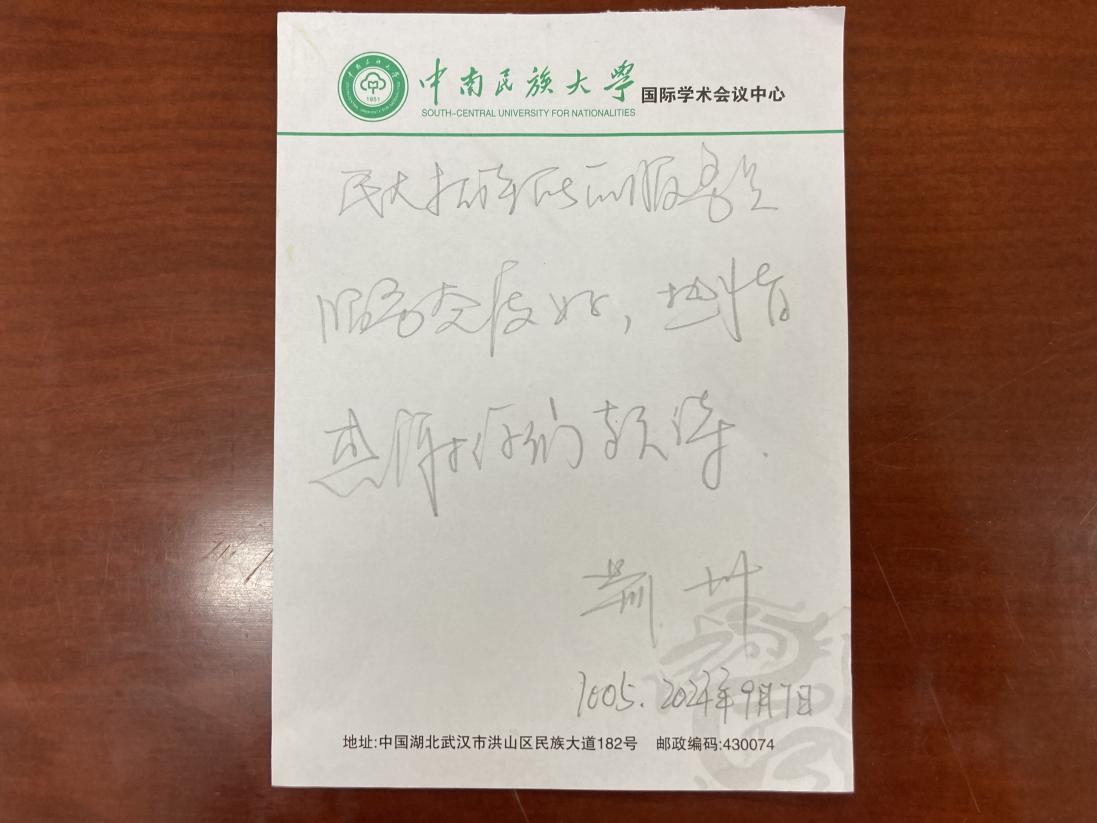 中南民族大學 国际学术会议中心
SOUTH-CENTRAL UNIVERSITY FOR NATIONALITIES
1951
民大招待所的服务员
服务态度好，热情
感谢你们款待.
荆州
1005. 2023年9月7日
地址:中国湖北武汉市洪山区民族大道182号 邮政编码:430074